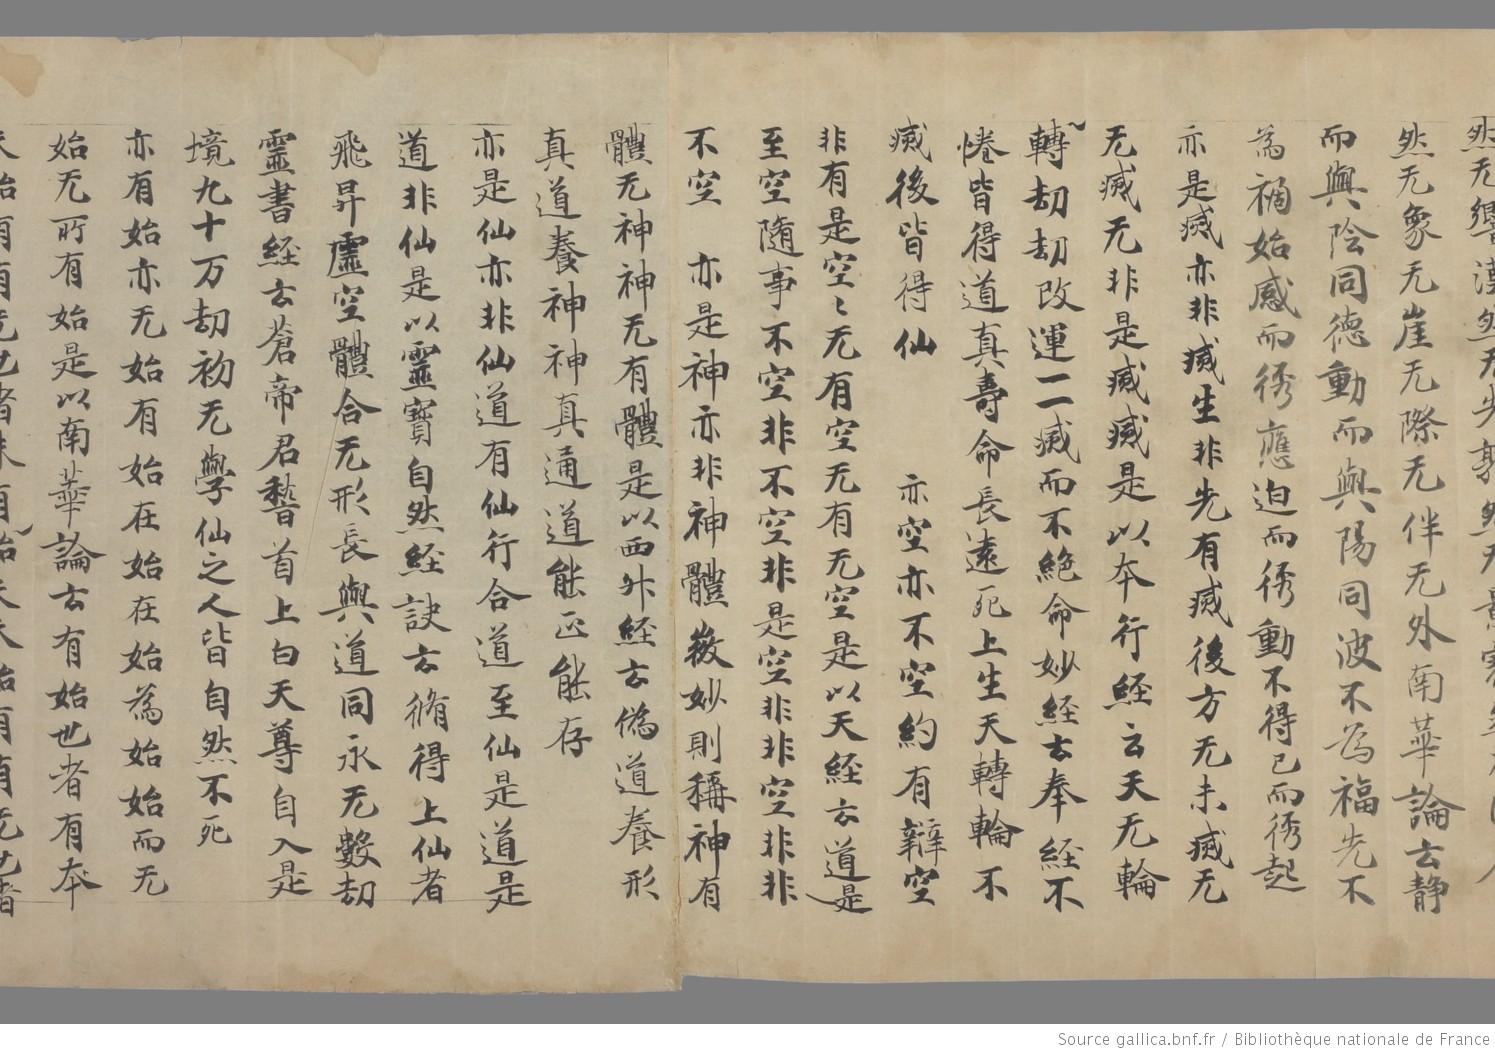 然无象无崖无際无伴无外南華論云静
而與陰同德動而與陽同波不為福先不
為禍始感而後應迫而後動不得已而後起
亦是滅亦非滅生非先有滅後方无未滅无
无滅无非是滅滅是以本行経云天无輪
轉劫劫改運一一滅而不絶命妙経云奉経不
惓皆得道真壽命長遠死上生天轉輪不
滅後皆得仙 亦空亦不空約有辯空
非有是空〻无有空无有无空是以天経云道是
至空隨事不空非不空非是空非非空非非
不空 亦是神亦非神體微妙則稱神有
體无神神无有體是以西升経云偽道養形
真道養神神真通道能亾能存
亦是仙亦非仙道有仙行合道至仙是道是
道非仙是以靈寳自然経訣云脩得上仙者
飛昇虛空體合无形長與道同永无數劫
靈書経云蒼帝君稽首上白天尊自入是
境九十万劫初无學仙之人皆自然不死
亦有始亦无始有始在始在始為始始而无
始无所有始是以南華論云有始也者有本